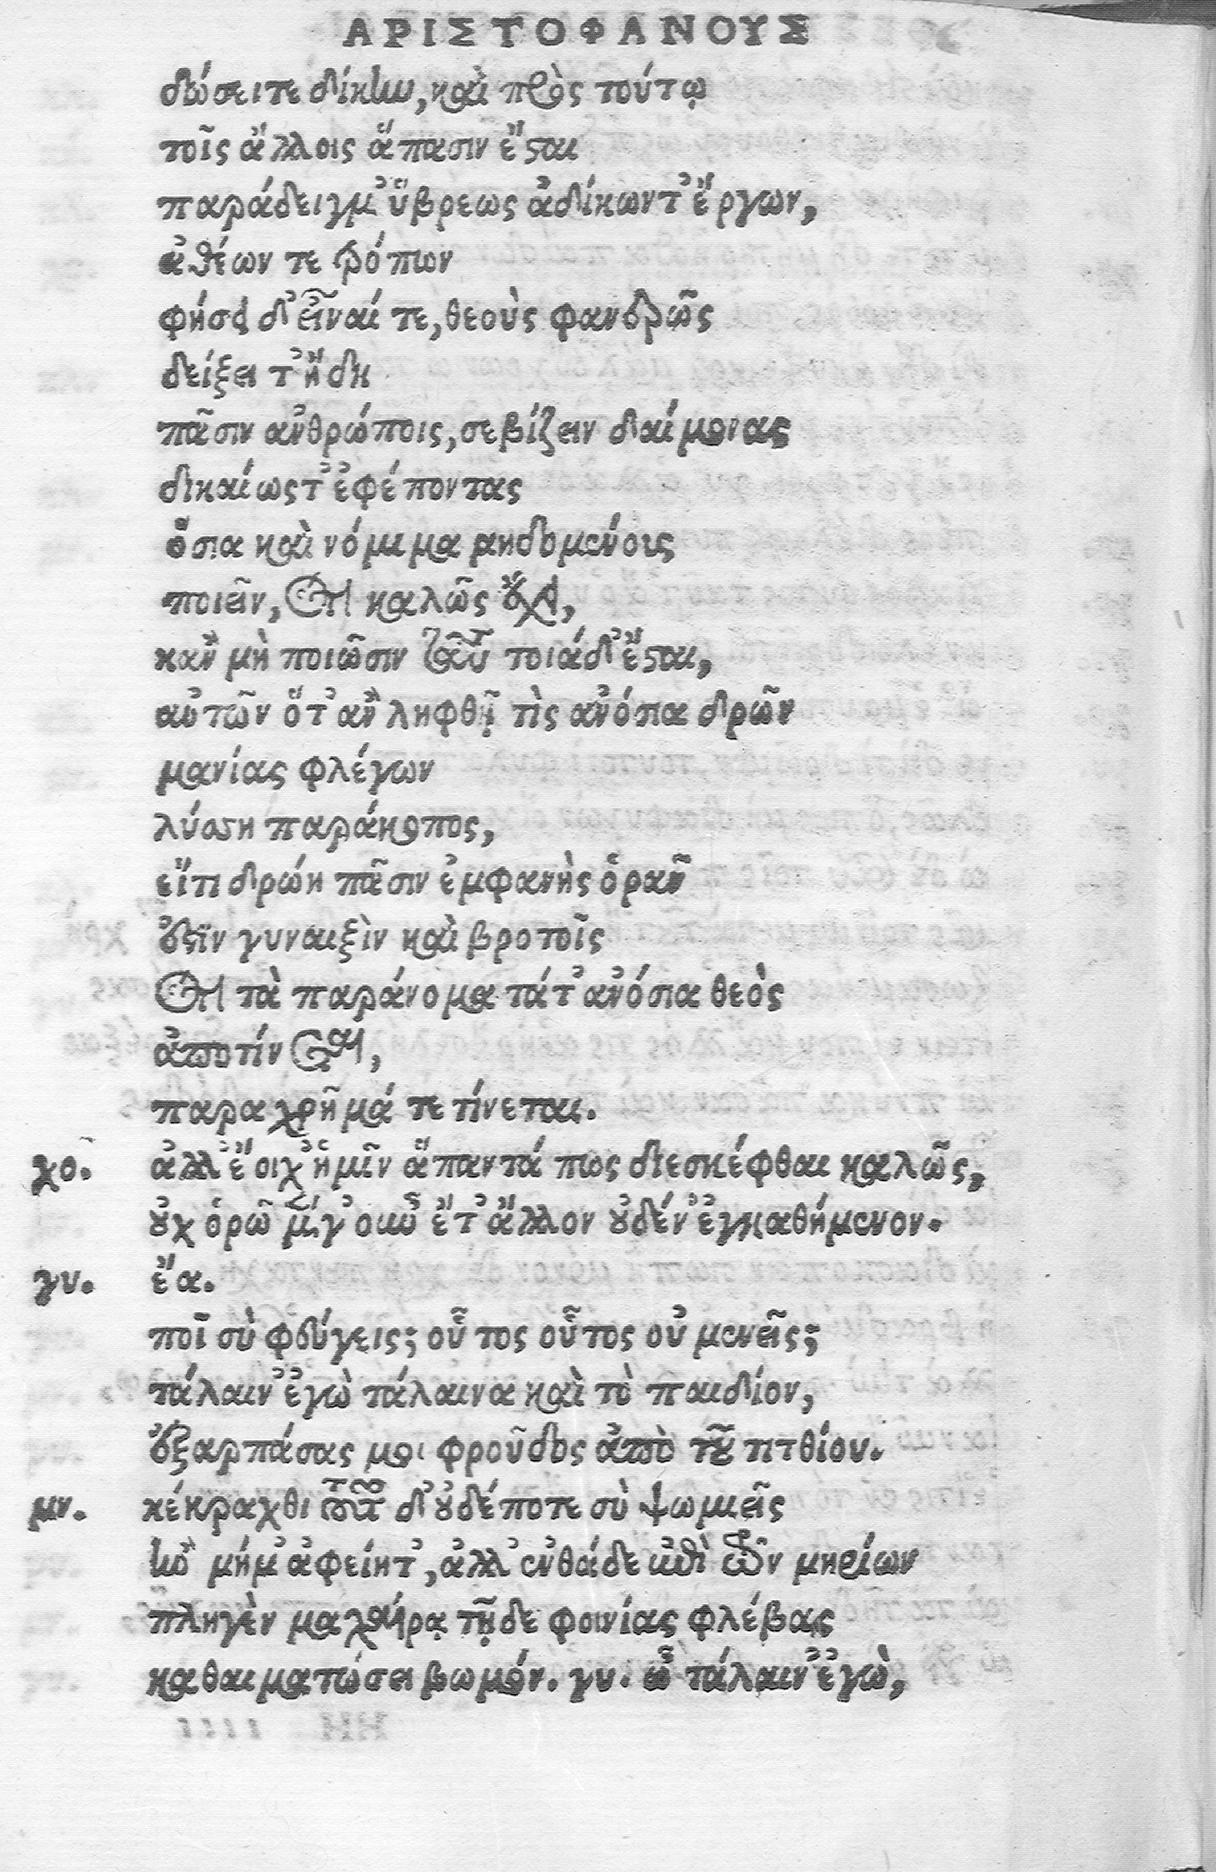 ΑΡΙΣΤΟΦΑΝΟΥΣ
δώσει τε δίκην, καὶ πρὸς τούτῳ
τοῖς ἄλλοις ἅπασιν ἔσται
παράδειγμ' ὕβρεως ἀδίκων τ' ἔργων,
ἀθέων τε τρόπων
φήσει δ' εἶναί τε, θεοὺς φανερῶς
δείξει τ' ἤδη
πᾶσιν ἀνθρώποις, σεβίζειν δαίμονας
δικαίως τ' ἐφέποντας
ὅσια καὶ νόμιμα μηδομένους
ποιεῖν, ὅτι καλῶς ἔχει,
κἂν μὴ ποιῶσιν ταῦτα τοιάδ' ἔσται,
αὐτῶν ὅτ' ἂν ληφθῇ τὶς ἀνόσια δρῶν
μανίας φλέγων
λύσση παράκοπος,
εἴτι δρώη πᾶσιν ἐμφανὴς ὁρᾶν
ἐστὶν γυναιξὶν καὶ βροτοῖς
ὅτι τὰ παράνομα τά τ' ἀνόσια θεὸς
ἀποτίνεται,
παραχρῆμά τε τίνεται.
χο. ἀλλ' ἔοιχ' ἡμῖν ἅπαντά πως διεσκέφθαι καλῶς,
οὐχ ὁρῶμέν γ' οὖν ἔτ' ἄλλον οὐδέν' ἐγκαθήμενον.
γυ. ἔα.
ποῖ σὺ φεύγεις; οὗτος οὗτος οὐ μενεῖς;
τάλαιν' ἐγὼ τάλαινα καὶ τὸ παιδίον,
ἐξαρπάσας μοι φροῦδος ἀπὸ τοῦ τιτθίου.
μν. κέκραχθι τοῦτο δ' οὐδέποτε σὺ ψωμιεῖς
ἢν μή μ' ἀφείητ', ἀλλ' ἐνθάδε ἐπὶ τῶν μηρίων
πληγὲν μαχαίρᾳ τῇδε φοινίας φλέβας
καθαιματώσει βωμόν. γυ. ὦ τάλαιν' ἐγὼ,